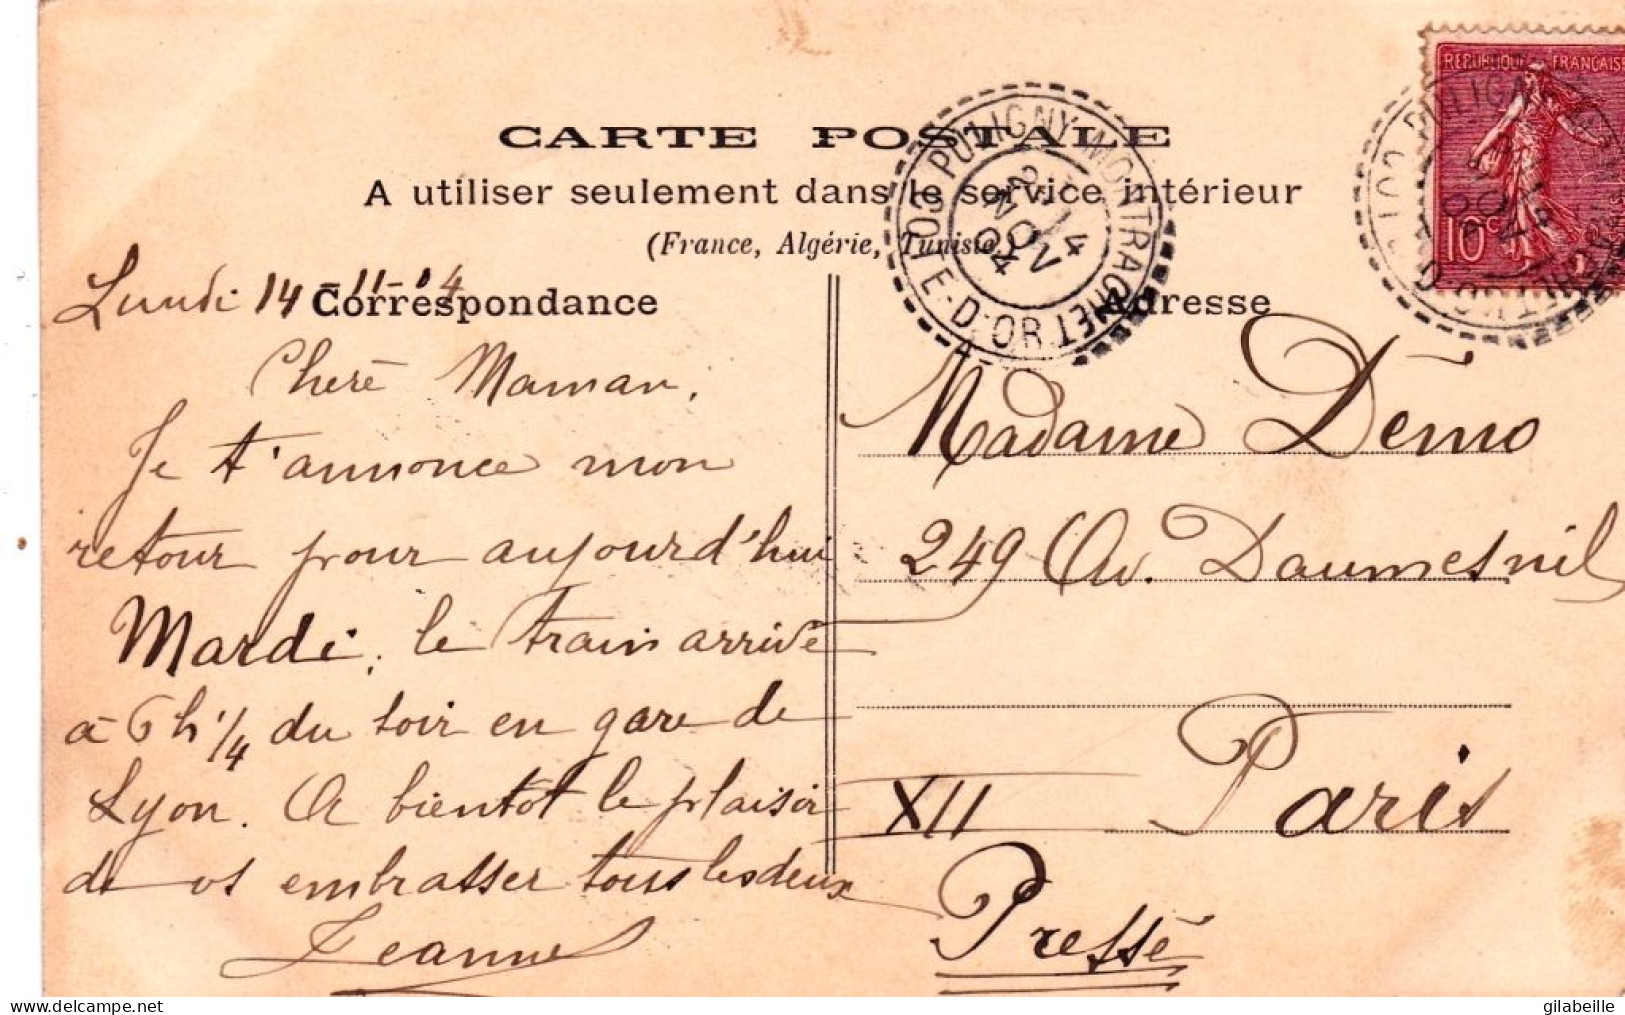 CARTE POSTALE
A utiliser seulement dans le service intérieur
(France, Algérie, Tunisie)
Correspondance
Adresse
RÉPUBLIQUE FRANÇAISE
10c
PULIGNY-MONTRACHET
COTE-D'OR
NOV
04
Lundi 14-11-04
Cherē Maman,
Je t'annonce mon
retour pour aujourd'hui
Mardi, le train arrive
à 6h 1/4 du soir en gare de
Lyon. A bientôt le plaisir
de vs embrasser tous les deux
Jeanne
Madame Démo
249 Av. Daumesnil
Paris
XII
Pressé
gilabeille